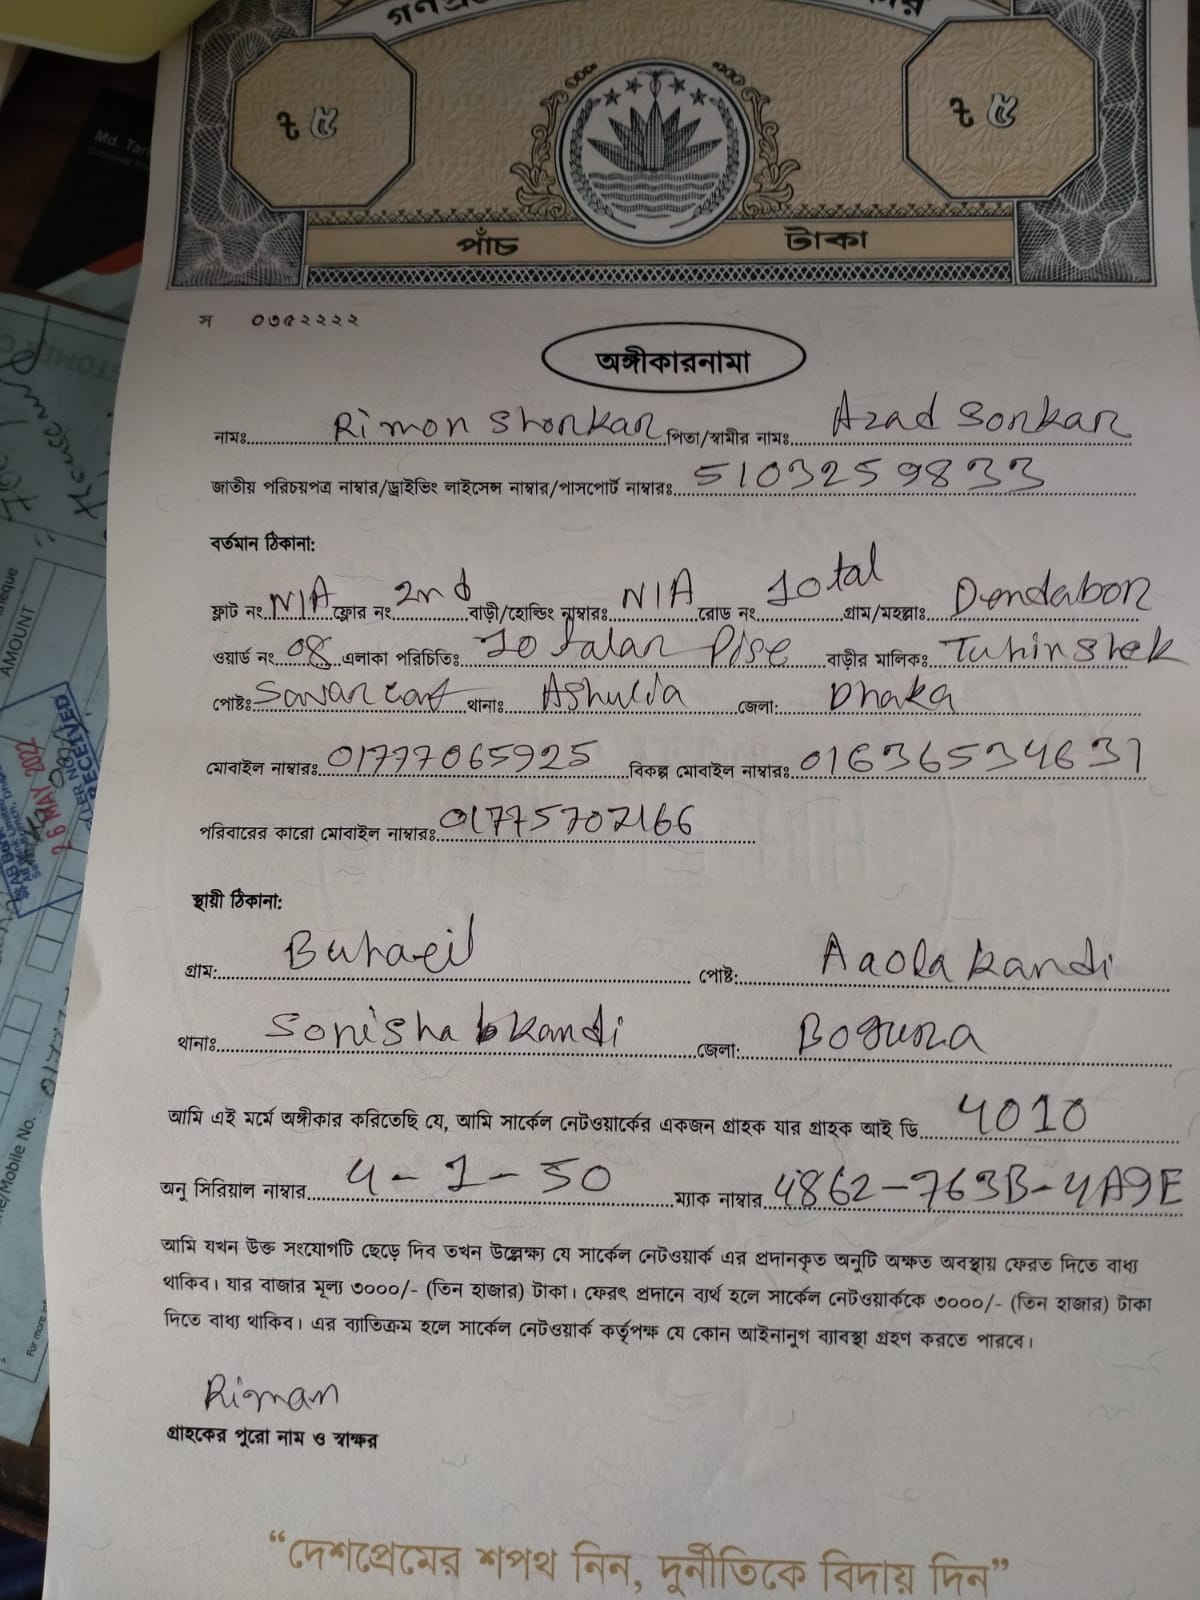 ৳ ৫
৳ ৫
পাঁচ টাকা
স ০৩৫২২২২
অঙ্গীকারনামা
নামঃ Rimon Shonkar পিতা/স্বামীর নামঃ Azad Sonkar
জাতীয় পরিচয়পত্র নাম্বার/ড্রাইভিং লাইসেন্স নাম্বার/পাসপোর্ট নাম্বারঃ 5103259833
বর্তমান ঠিকানা:
ফ্লাট নং N/A ফ্লোর নং 2nd বাড়ী/হোল্ডিং নাম্বারঃ N/A রোড নং 10 tal গ্রাম/মহল্লাঃ Dendabor
ওয়ার্ড নং 08 এলাকা পরিচিতিঃ 10 Talar বাড়ীর মালিকঃ Tuhin Shek
পোষ্টঃ Savar cant থানাঃ Ashulia জেলা: Dhaka
মোবাইল নাম্বারঃ 01777065925 বিকল্প মোবাইল নাম্বারঃ 01636534631
পরিবারের কারো মোবাইল নাম্বারঃ 01775702166
স্থায়ী ঠিকানা:
গ্রাম: Buraeil পোষ্ট: Aaolakandi
থানাঃ Sorisha kandi জেলা: Bogura
আমি এই মর্মে অঙ্গীকার করিতেছি যে, আমি সার্কেল নেটওয়ার্কের একজন গ্রাহক যার গ্রাহক আই ডি 4010
অনু সিরিয়াল নাম্বার 4-1-50 ম্যাক নাম্বার 4862-763B-4A9E
আমি যখন উক্ত সংযোগটি ছেড়ে দিব তখন উল্লেক্ষ্য যে সার্কেল নেটওয়ার্ক এর প্রদানকৃত অনুটি অক্ষত অবস্থায় ফেরত দিতে বাধ্য
থাকিব। যার বাজার মূল্য ৩০০০/- (তিন হাজার) টাকা। ফেরৎ প্রদানে ব্যর্থ হলে সার্কেল নেটওয়ার্ককে ৩০০০/- (তিন হাজার) টাকা
দিতে বাধ্য থাকিব। এর ব্যাতিক্রম হলে সার্কেল নেটওয়ার্ক কর্তৃপক্ষ যে কোন আইনানুগ ব্যাবস্থা গ্রহণ করতে পারবে।
Riman
গ্রাহকের পুরো নাম ও স্বাক্ষর
“দেশপ্রেমের শপথ নিন, দুর্নীতিকে বিদায় দিন”
AMOUNT
RECEIVED
26 MAY 2022
Mobile No.